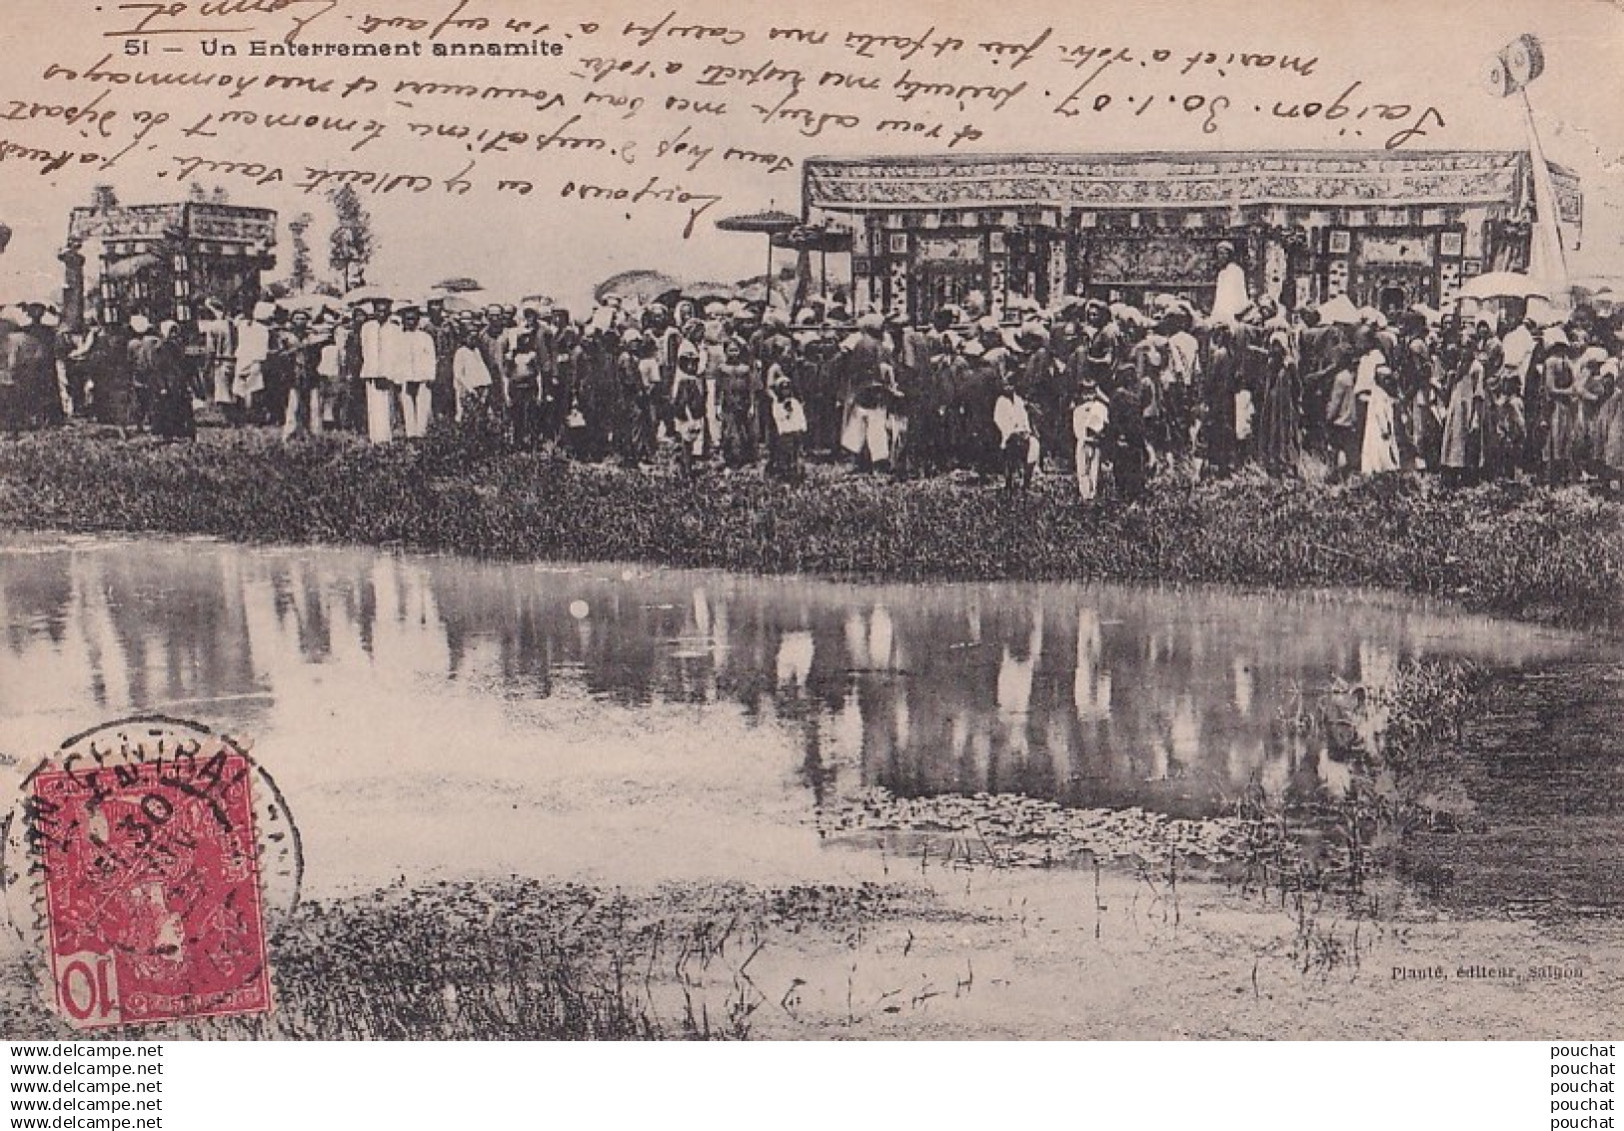 51 — Un Enterrement annamite
Saïgon. 30.1.07.
Toujours en excellente santé, j'attends
sans trop d'impatience le moment du départ
et vous adresse mes bons souvenirs et mes hommages
présentez mes respects à votre
mari et à votre père et faites mes caresses à vos enfants.
SAIGON-CENTRAL
30
10
Planté, éditeur, Saigon
www.delcampe.net
www.delcampe.net
www.delcampe.net
www.delcampe.net
www.delcampe.net
pouchat
pouchat
pouchat
pouchat
pouchat